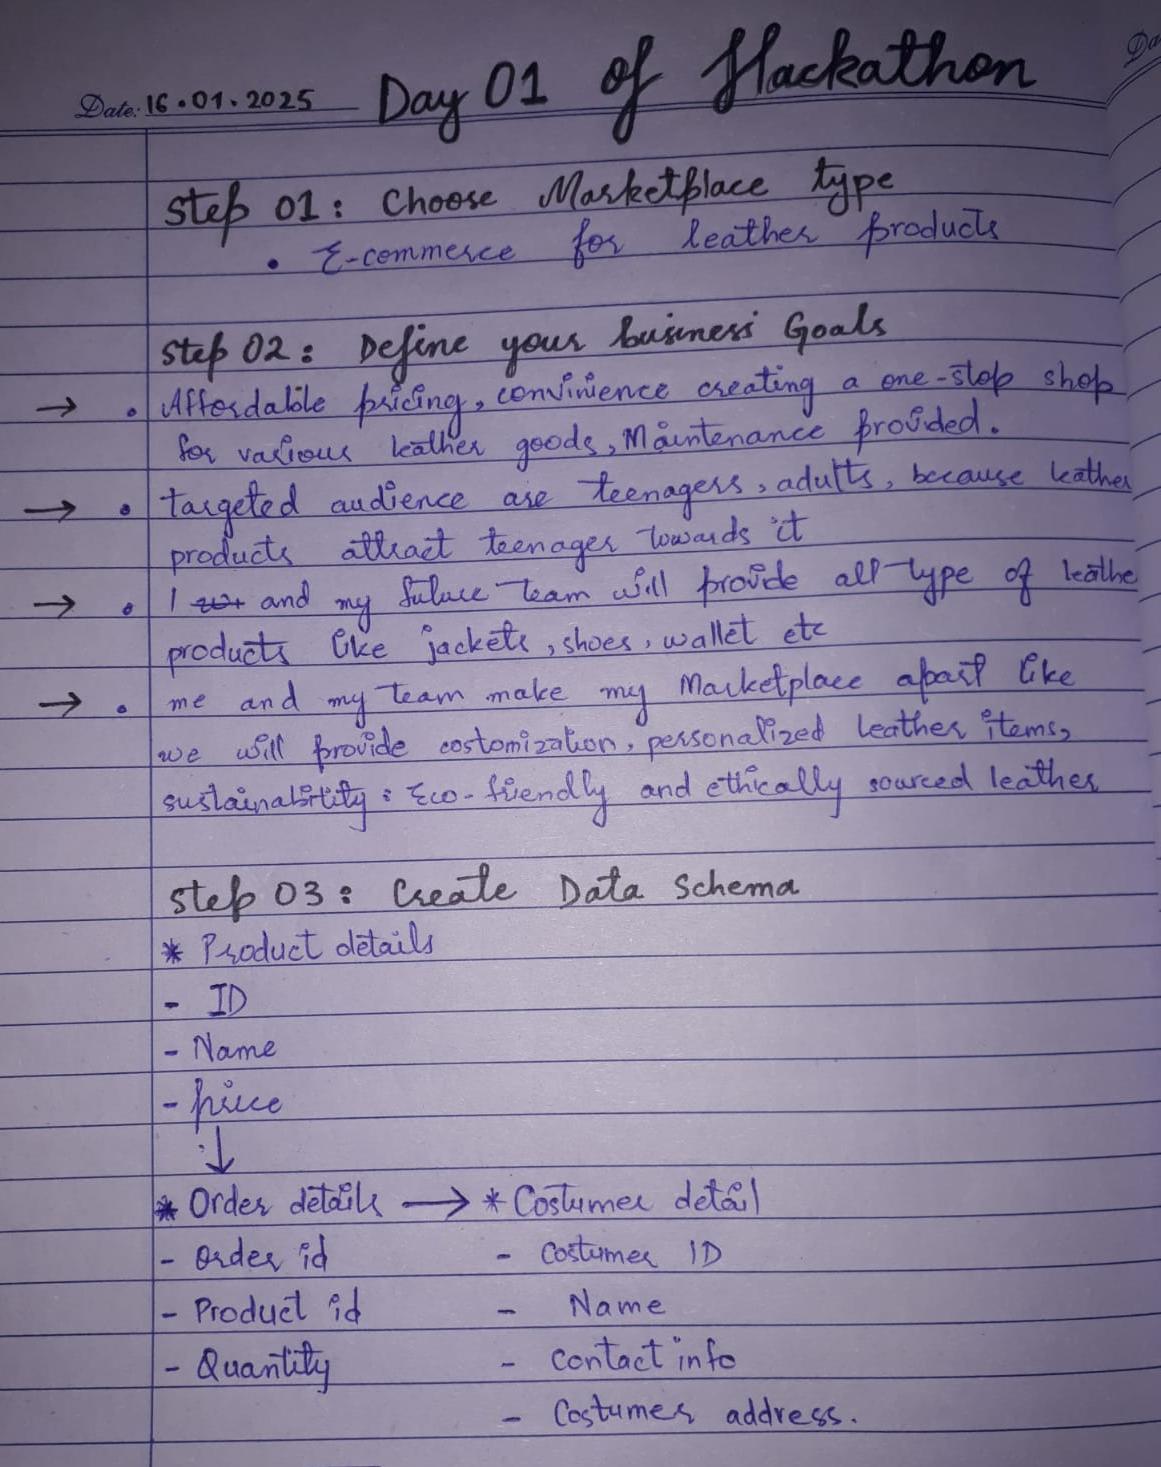 Date: 16.01.2025 Day 01 of Hackathon
Step 01: Choose Marketplace type
• E-commerce for leather products
Step 02: Define your business Goals
→ • Affordable pricing, convinience creating a one-stop shop
for various leather goods, Maintenance provided.
→ • targeted audience are teenagers, adults, because leather
products attract teenager towards it
→ • I and my future team will provide all type of leathe
products like jackets, shoes, wallet etc
→ • me and my team make my Marketplace apart like
we will provide costomization, personalized leather items,
sustainability: Eco-friendly and ethically sourced leather
Step 03: Create Data Schema
* Product details
- ID
- Name
- price
↓
* Order details → * Costumer detail
- Order id - Costumer ID
- Product id - Name
- Quantity - Contact info
- Costumer address.